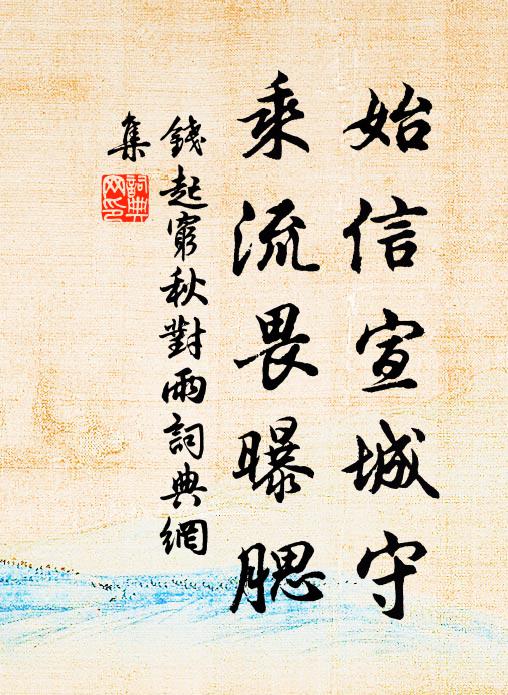 始信宣城守
乘流畏曝腮
錢起窮秋對雨詞典網
集
詞典
网印